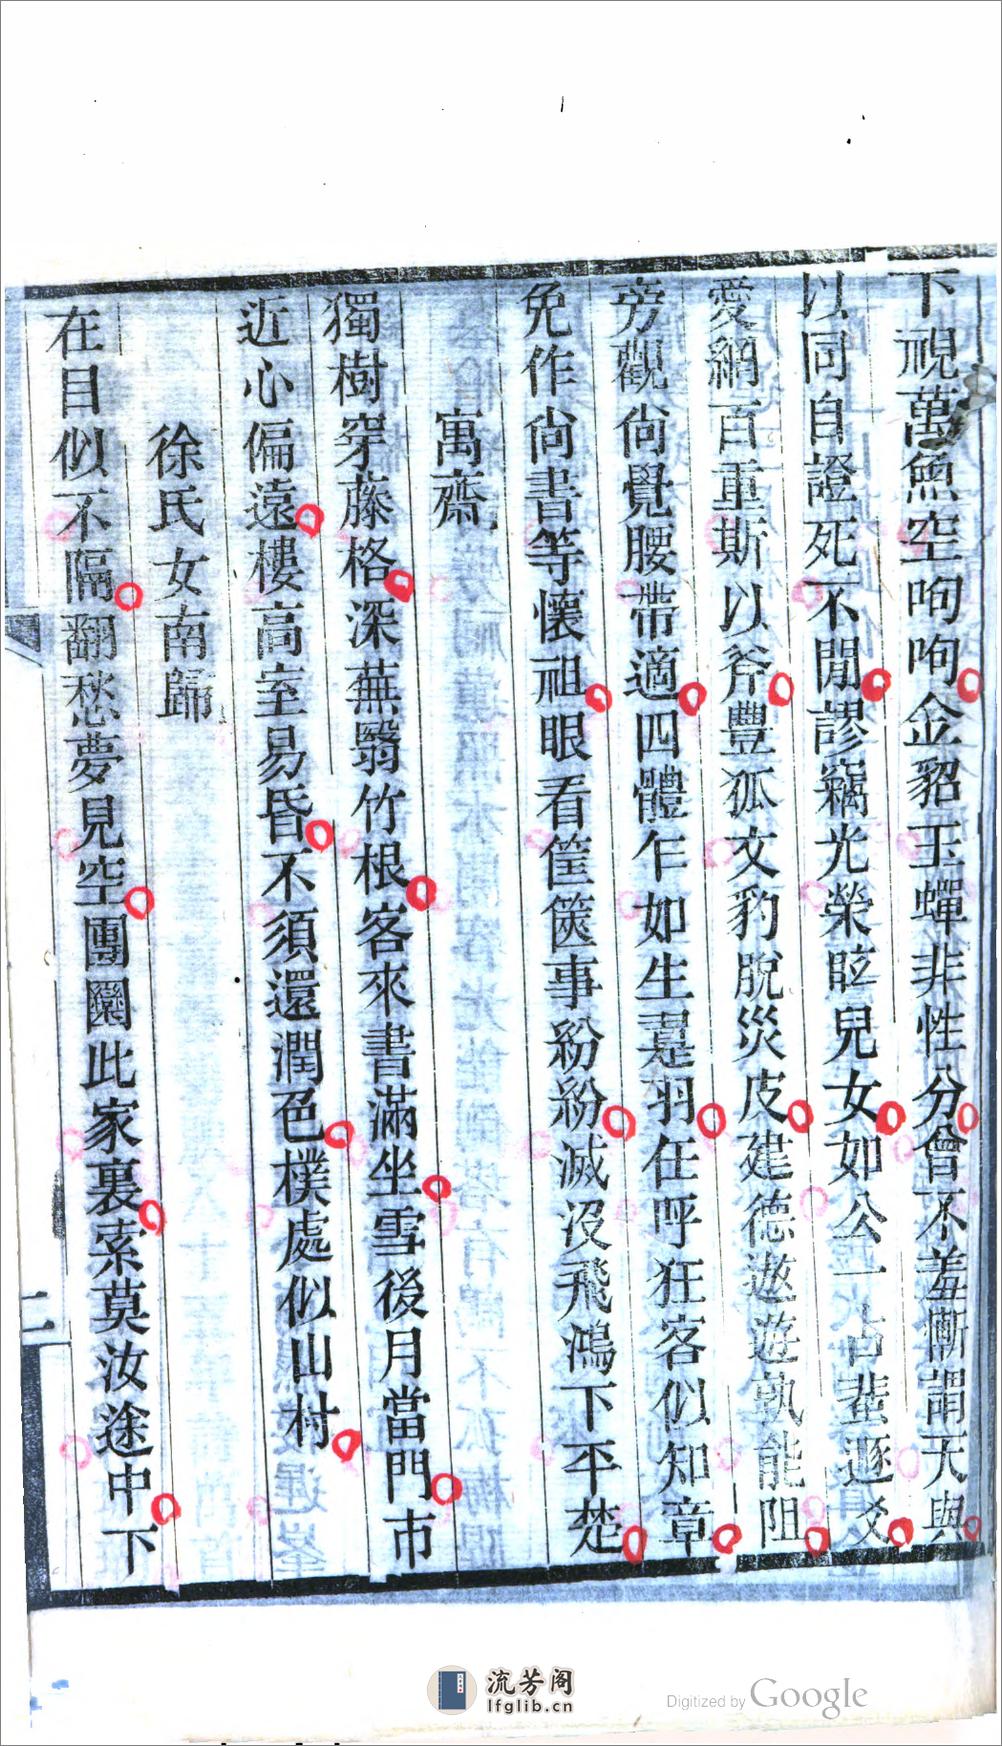 下視萬魚空呴呴金貂玉蟬非性分曾不羞慚謂天與
以同自證死不閒謬竊光榮眩兒女如公一占蜚遯爻
愛網百重斯以斧豐狐文豹脫災皮建德遨遊孰能阻
旁觀尙覺腰帶適四體乍如生是羽任呼狂客似知章
免作尙書等懷祖眼看筐篋事紛紛滅沒飛鴻下平楚
寓齋
獨樹穿藤格深蕪翳竹根客來書滿坐雪後月當門市
近心偏遠樓高室易昏不須還潤色樸處似山村
徐氏女南歸
在目似不隔翻愁夢見空團圞此家裏索莫汝途中下
二
流芳阁
lfglib.cn
Digitized by Google